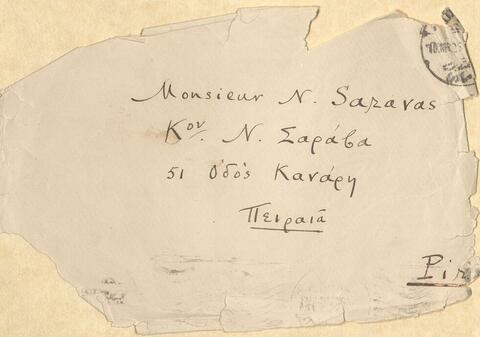 Monsieur N. Saravas
Κον. Ν. Σαράβα
51 Ὁδὸς Κανάρη
Πειραιᾶ
Pir